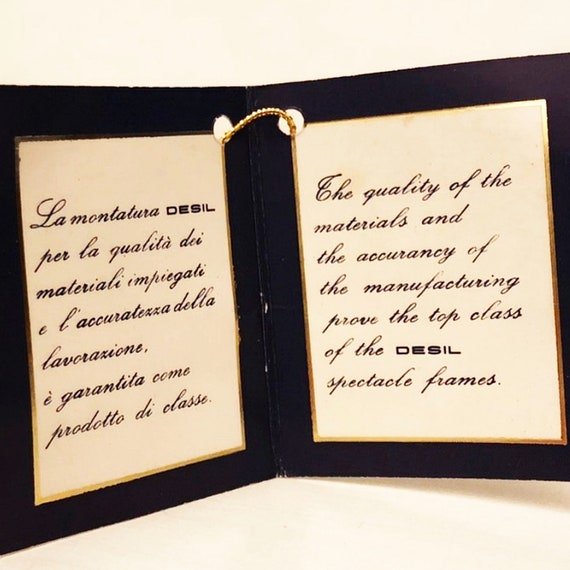 La montatura DESIL
per la qualità dei
materiali impiegati
e l'accuratezza della
lavorazione,
è garantita come
prodotto di classe.
The quality of the
materials and
the accurancy of
the manufacturing
prove the top class
of the DESIL
spectacle frames.